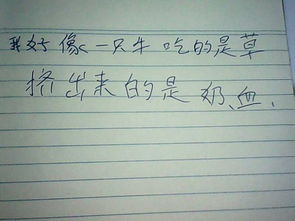 我好像一只牛 吃的是草
挤出来的是 奶、血.